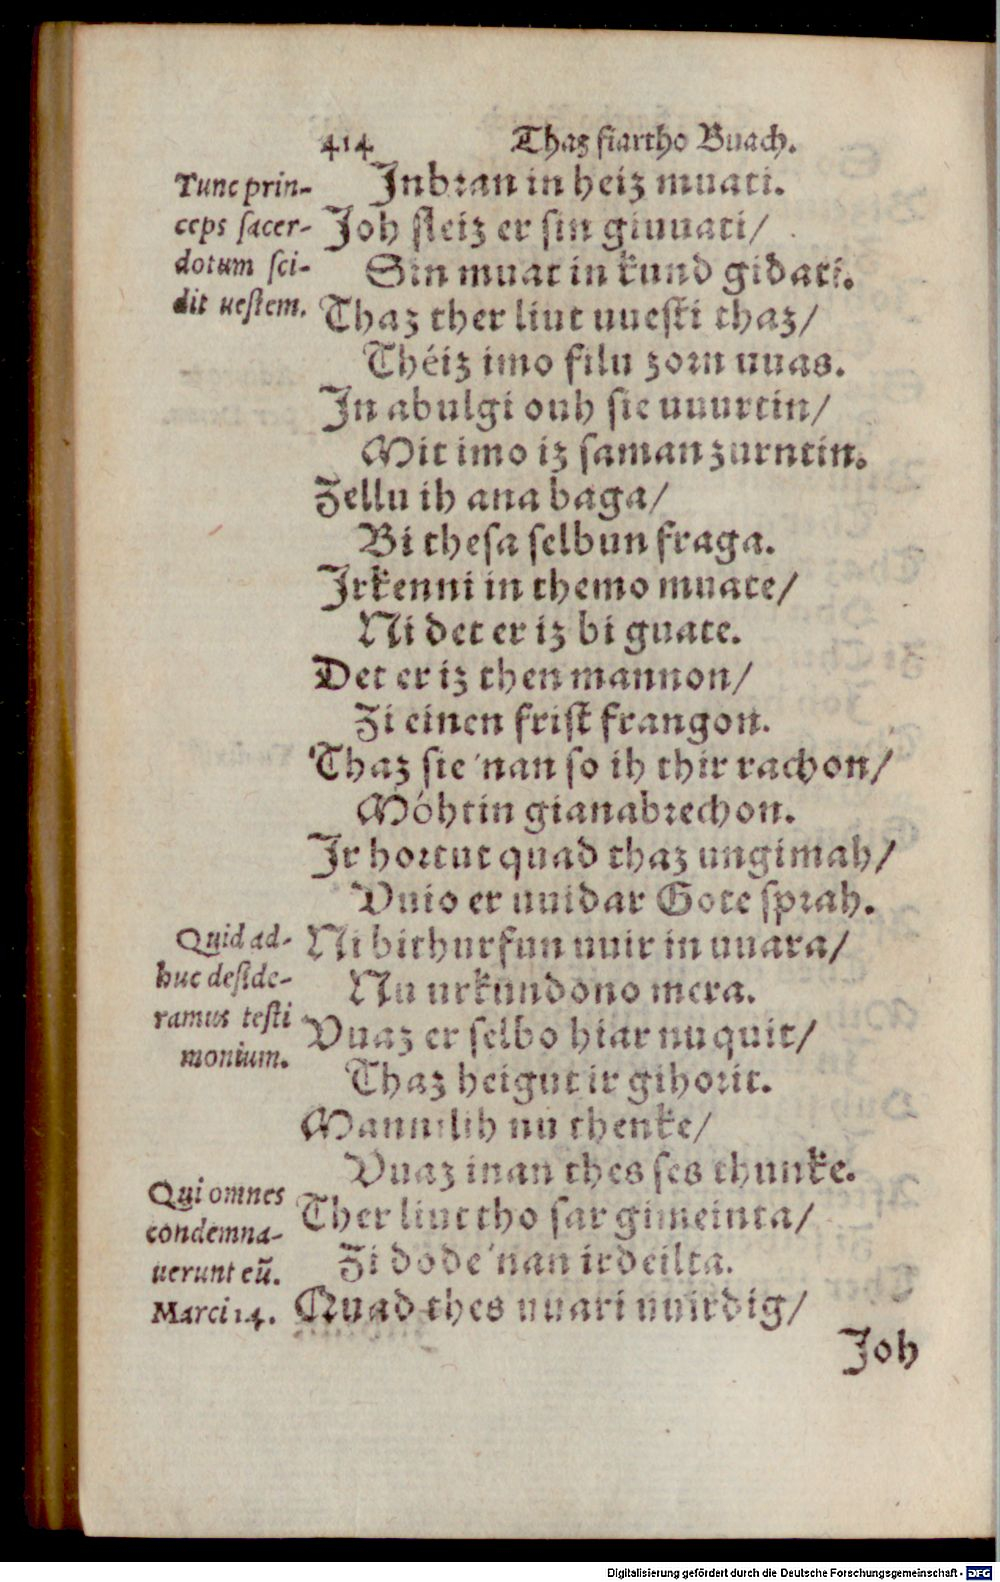 414 Thaz fiartho Buach.
Inbran in heiz muati.
Joh sleiz er sin giuuati/
Sin muat in kund gidati.
Thaz ther liut uuesti thaz/
Théiz imo filu zorn uuas.
In abulgi ouh sie uuurtin/
Mit imo iz saman zurntin.
Zellu ih ana baga/
Bi thesa selbun fraga.
Irkenni in themo muate/
Ni det er iz bi guate.
Det er iz then mannon/
Zi einen frist frangon.
Thaz sie 'nan so ih thir rachon/
Móhtin gianabrechon.
Ir hortut quad thaz ungimah/
Vuio er uuidar Gote sprah.
Ni bithurfun uuir in uuara/
Nu urkundono mera.
Vuaz er selbo hiar nu quit/
Thaz heigut ir gihorit.
Mannilih nu thenke/
Vuaz inan thes ses thunke.
Ther liut tho sar gimeinta/
Zi dode 'nan irdeilta.
Quad thes uuari uuirdig/
Joh
Tunc prin-
ceps sacer-
dotum sci-
dit uestem.
Quid ad-
huc deside-
ramus testi
monium.
Qui omnes
condemna-
uerunt eũ.
Marci 14.
Digitalisierung gefördert durch die Deutsche Forschungsgemeinschaft - DFG